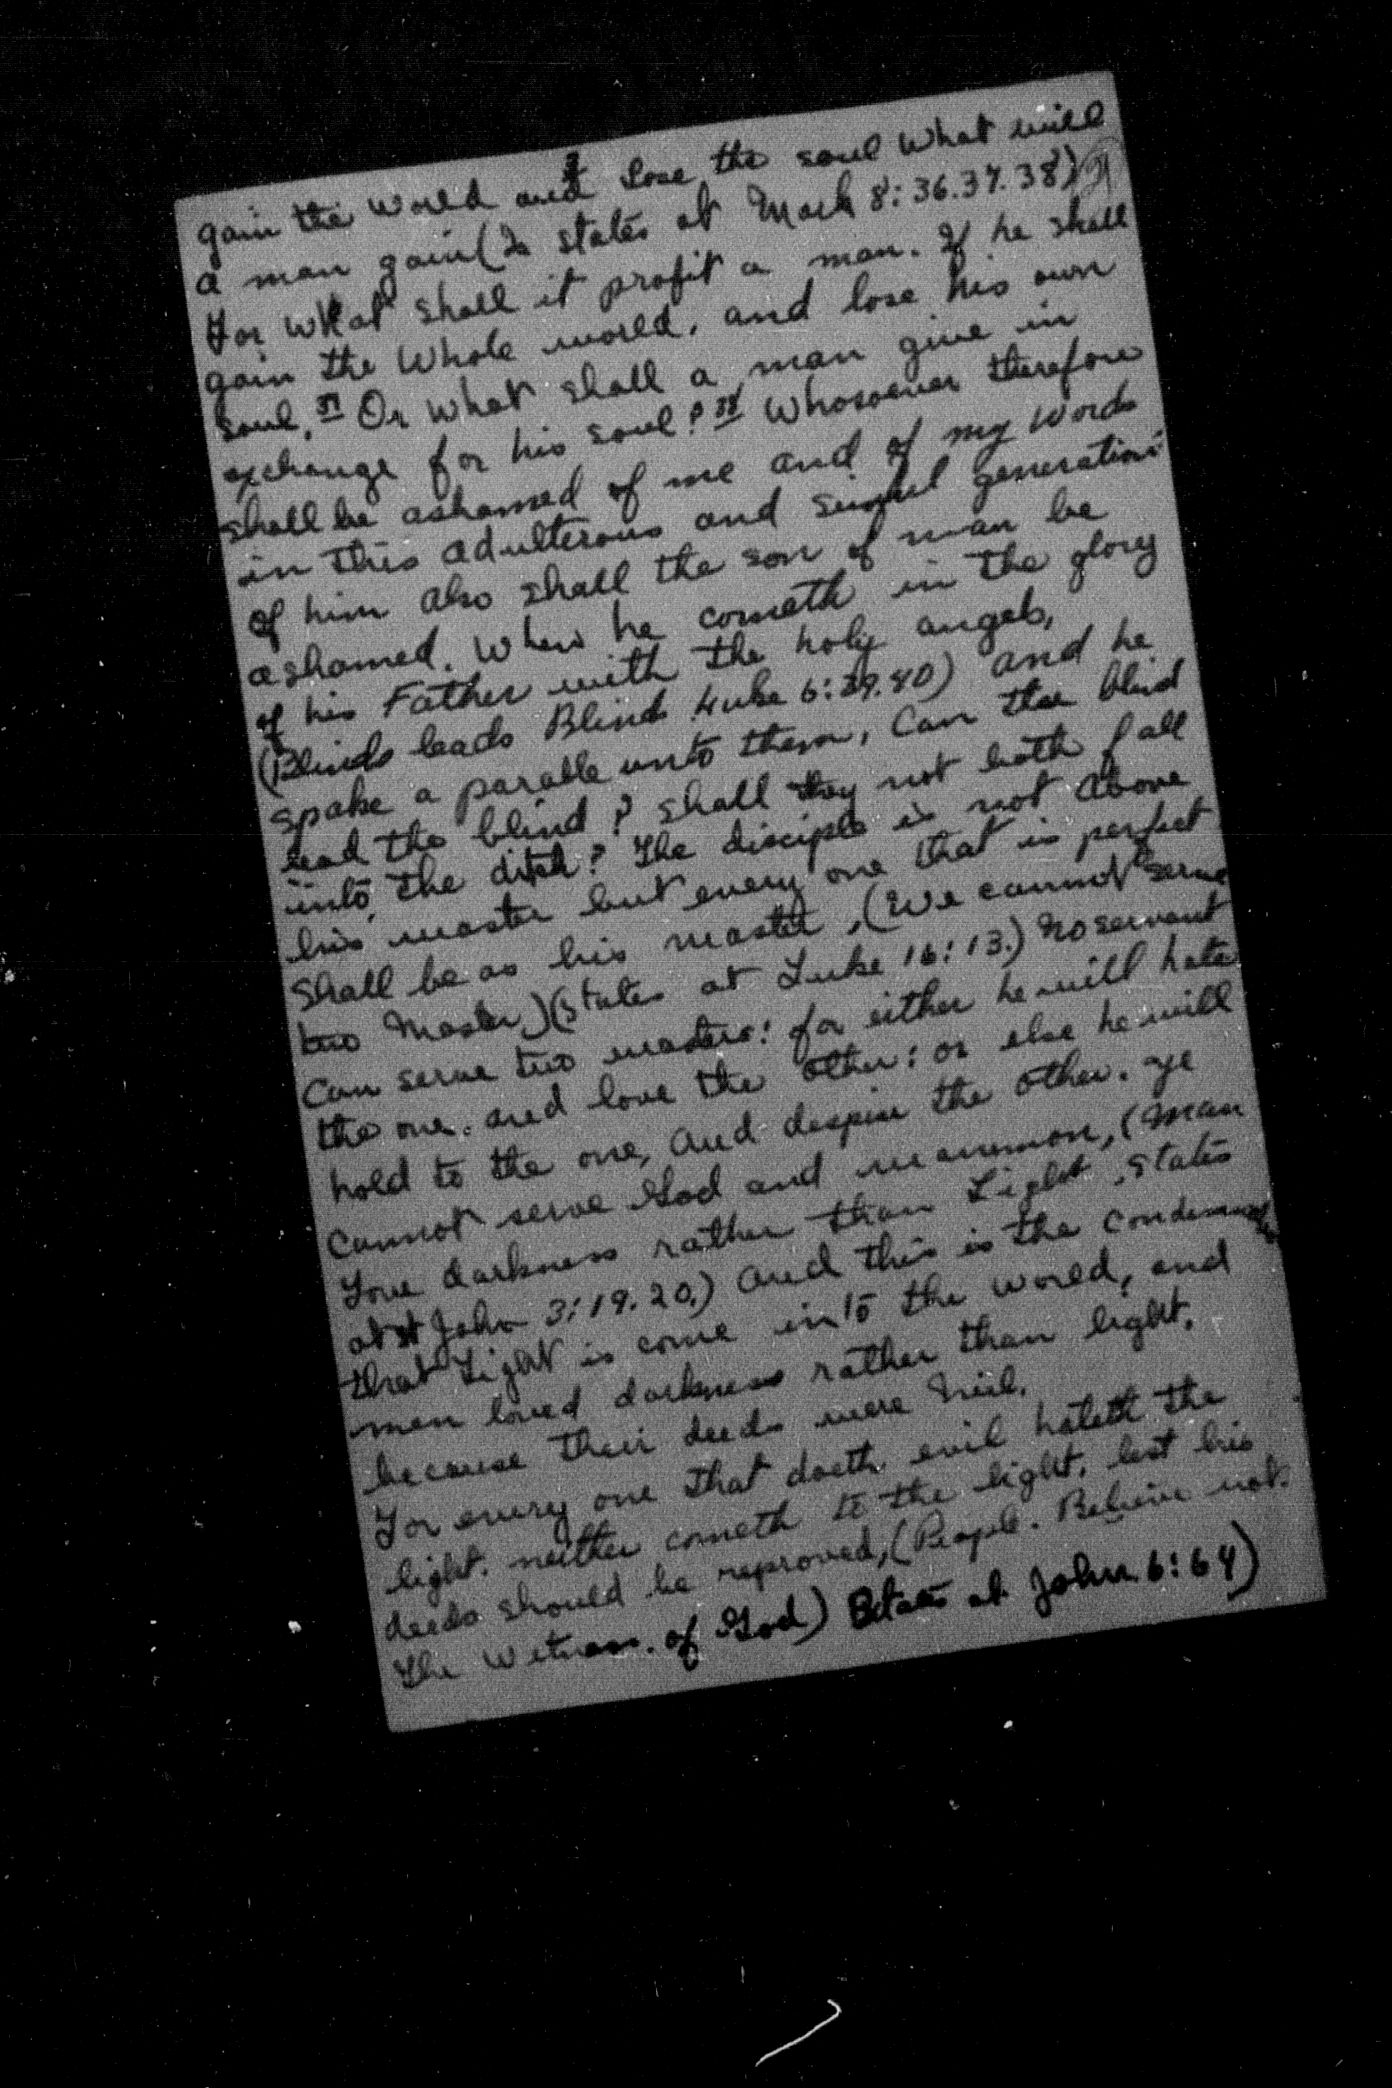 gain the world and lose the soul what will
a man gain (Is states at Mark 8:36.37.38)
For what shall it profit a man. If he shall
gain the whole world, and lose his own
soul. 37 Or what shall a man give in
exchange for his soul? 38 Whosoever therefore
shall be ashamed of me and of my words
in this adulterous and sinful generation:
of him also shall the son of man be
ashamed. When he cometh in the glory
of his Father with the holy angels,
(Blinds leads Blinds Luke 6:39.40) and he
spake a parable unto them, Can the blind
lead the blind? shall they not both fall
into the ditch? The disciple is not above
his master but every one that is perfect
shall be as his master, (We cannot serve
two Master) (states at Luke 16:13.) No servant
can serve two masters: for either he will hate
the one. and love the other: or else he will
hold to the one, and despise the other. ye
cannot serve God and mammon, (Man
Love darkness rather than Light, states
at St John 3:19.20.) and this is the
that Light is come into the world, and
men loved darkness rather than light.
because their deeds were evil.
For every one that doeth evil hateth the
light. neither cometh to the light, lest his
deeds should be reproved, (People. Believe not.
The Witness. of God) States at John 6:64)